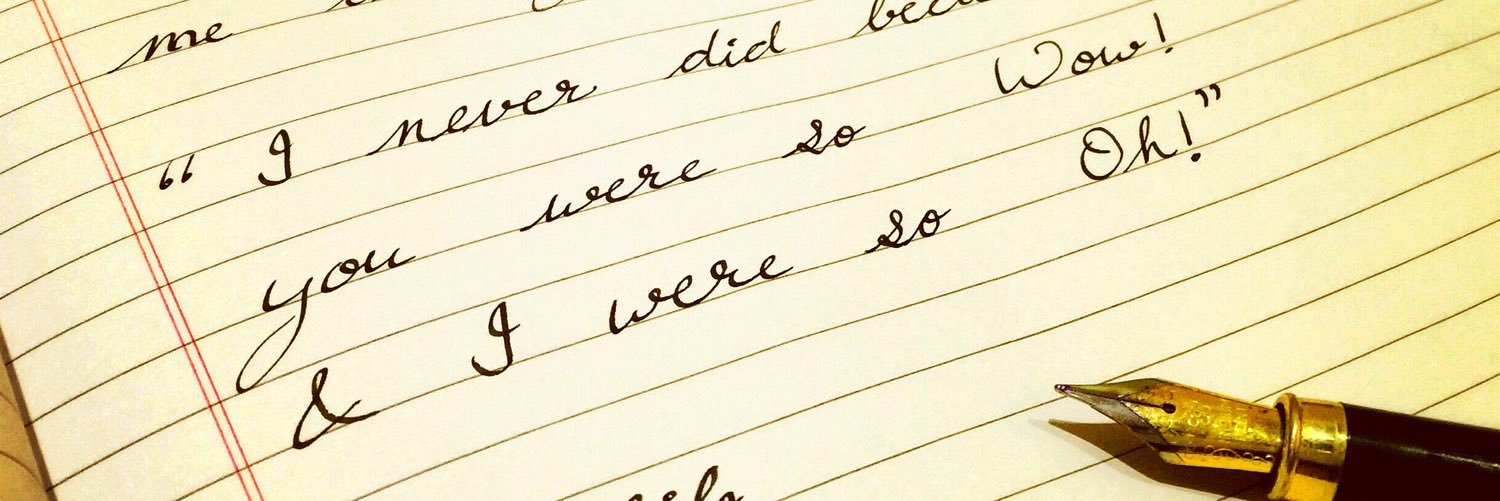 me
“ I never did
you were so Wow!
& I were so Oh!”